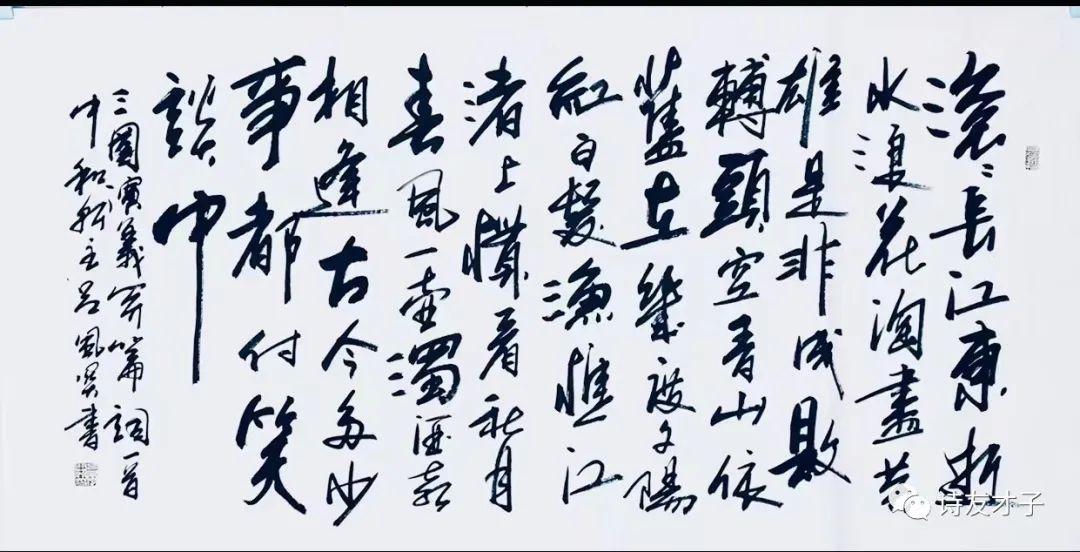 滚〻長江東逝
水浪花淘盡英
雄是非成敗
轉頭空青山依
舊在幾度夕陽
紅白髮漁樵江
渚上慣看秋月
春風一壺濁酒喜
相逢古今多少
事都付笑
談中
三國演義開篇詞一首
中和軒主吕風書
诗友才子